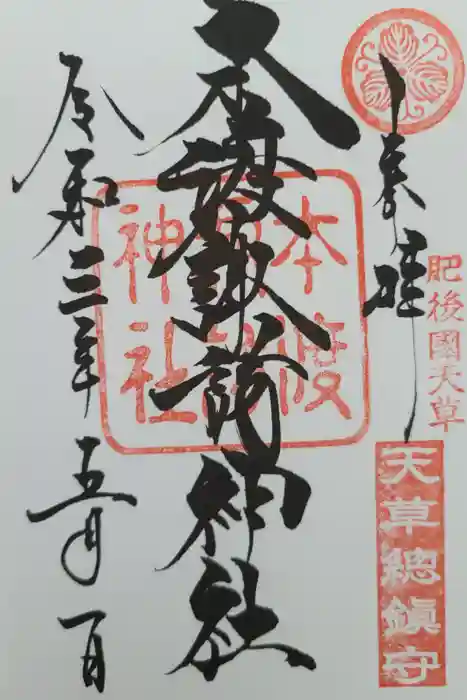 奉拝
肥後國天草
天草總鎮守
本渡諏訪神社
本渡
諏訪
神社
令和三年五月一日